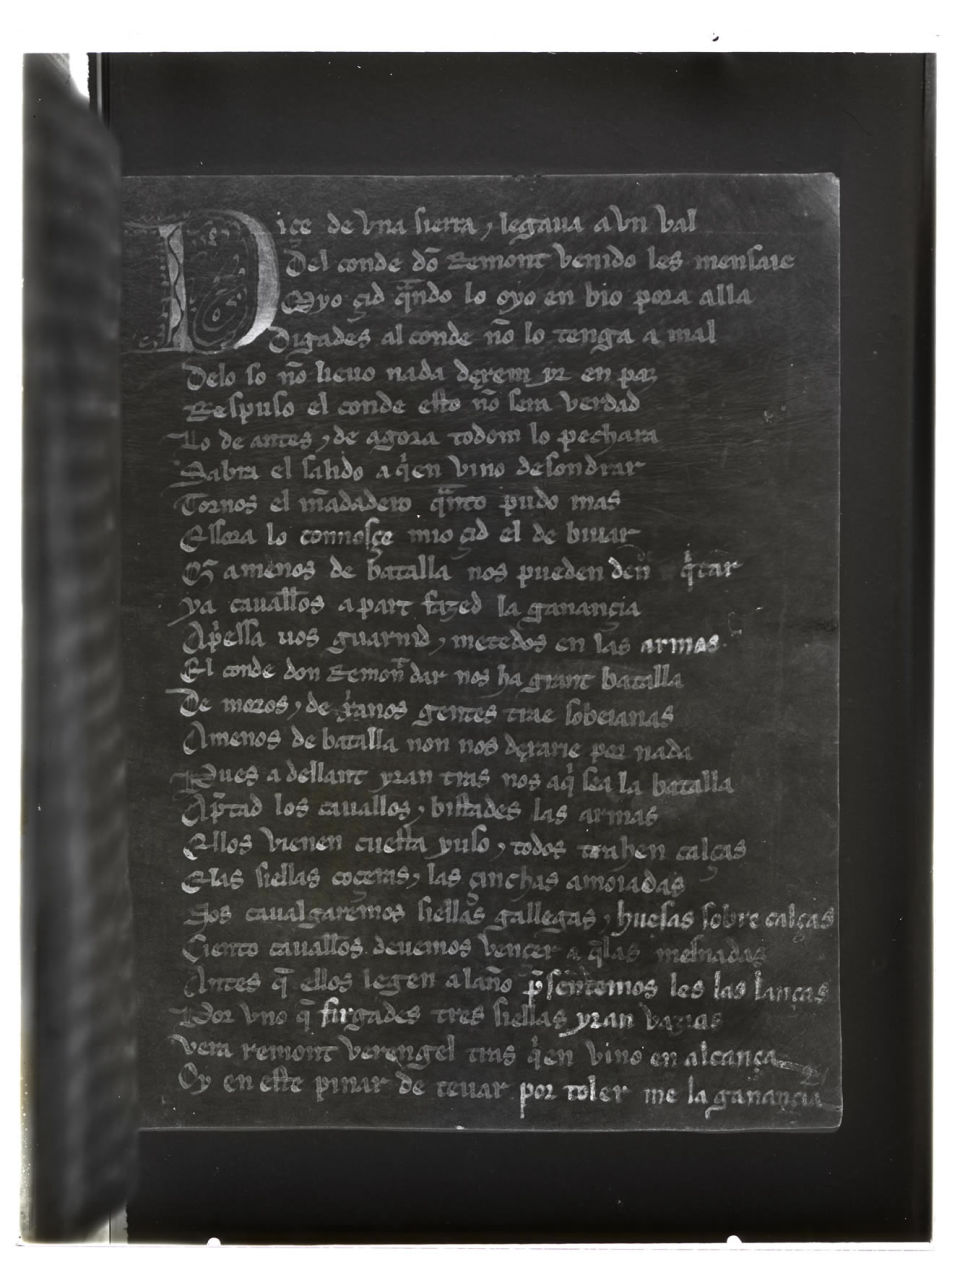 Dice de vna sierra ⁊ legaua a vn val
Del conde dõ Remont venido les mensaie
Myo çid q̃ndo lo oyo en bio pora alla
Digades al conde nõ lo tenga a mal
Delo so nõ lieuo nada dexem yr en paz
Respuso el conde esto nõ sera verdad
Lo de antes ⁊ de agora todom lo pechara
Sabra el salido a q̃en vino desondrar
Tornos el mãdadero q̃nto pudo mas
Essora lo connosçe mio çid el de biuar
Q̃ a menos de batalla nos pueden den q̃tar
ya cauall̃os a part fazed la ganançia
Ap̃essa uos guarnid ⁊ metedos en las armas
El conde don Remoñ dar nos ha grant batalla
De moros ⁊ de x̃anos gentes trae sobeianas
Amenos de batalla non nos dexarie por nada
Pues a dellant yran tras nos aq̃ sea la batalla
Ap̃tad los cauallos ⁊ bistades las armas
Ellos vienen cuesta yuso ⁊ todos trahen calças
Elas siellas coçeras ⁊ las çinchas amoiadas
Nos caualgaremos siellas gallegas ⁊ huesas sobre calças
Çiento cauall̃os deuemos vençer a q̃las mesnadas
Antes q̃ ellos legen a laño p̃sentemos les las lanças
Por vno q̃ firgades tres siellas yran vazias
vera remont verengel tras q̃en vino en alcança
Oy en este pinar de teuar por toler me la ganançia